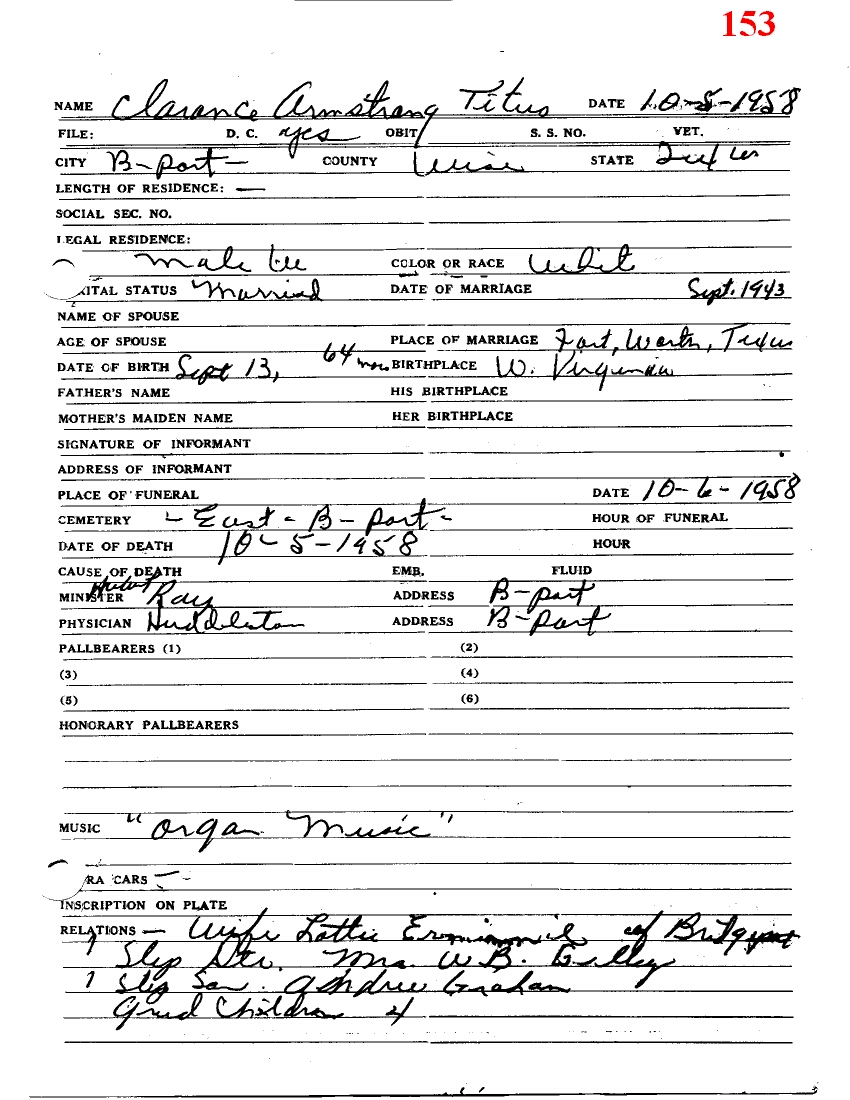 153
NAME Clarance Armstrong Titus DATE 10-5-1958
FILE: D. C. yes OBIT S. S. NO. VET.
CITY B-port- COUNTY Wise STATE Texas
LENGTH OF RESIDENCE: —
SOCIAL SEC. NO.
LEGAL RESIDENCE:
Male COLOR OR RACE Whit
ITAL STATUS Married DATE OF MARRIAGE Sept. 1943
NAME OF SPOUSE
AGE OF SPOUSE PLACE OF MARRIAGE Fort, Worth, Texas
DATE OF BIRTH Sept 13, 64 BIRTHPLACE W. Virginia
FATHER'S NAME HIS BIRTHPLACE
MOTHER'S MAIDEN NAME HER BIRTHPLACE
SIGNATURE OF INFORMANT
ADDRESS OF INFORMANT
PLACE OF FUNERAL DATE 10-6-1958
CEMETERY - East - B-port-
HOUR OF FUNERAL
DATE OF DEATH 10-5-1958 HOUR
CAUSE OF DEATH EMB. FLUID
MINISTER Ray ADDRESS B-port
PHYSICIAN Huddleston ADDRESS B-port
PALLBEARERS (1) (2)
(3) (4)
(5) (6)
HONORARY PALLBEARERS
MUSIC "organ Music"
RA CARS —
INSCRIPTION ON PLATE
RELATIONS — Wife Lottie of Bridgeport
1 Step Dtr. Mrs. W.B. Gilley
1 Step Son. Andrew Graham
Grand Children 4